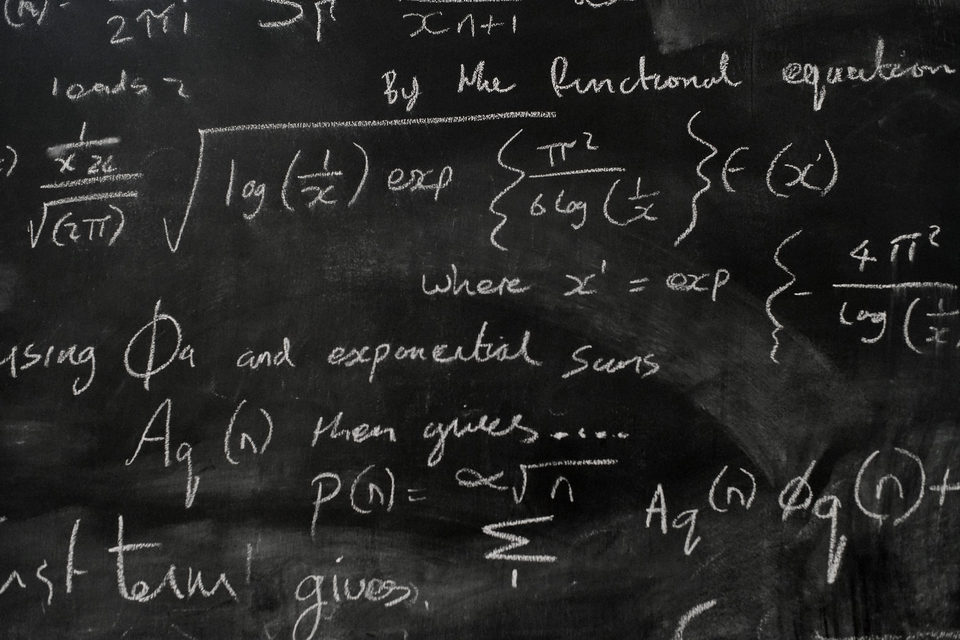 2πi Sp xn+1
leads 2 By the functional equation
1/x24 / √(2π) √ log (1/x) exp { π² / 6 log (1/x } F (x')
where x' = exp { - 4π² / log (1/x
using ϕq and exponential sums
Aq (n) then gives.....
p(n) = ∝√n Σ 1 Aq(n) ϕq(n) +
term gives.